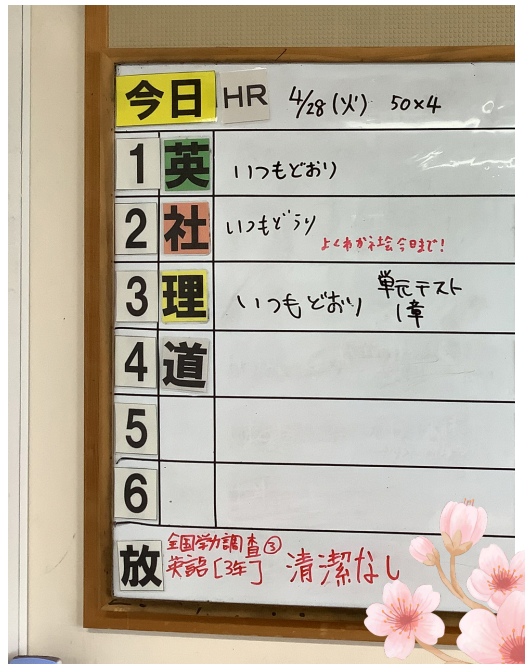 今日 HR 4/28(火) 50×4
1 英 いつもどおり
2 社 いつもどうり
よくわかる社会今日まで!
3 理 いつもどおり 単元テスト
1章
4 道
5
6
放 全国学力調査③
英語[3年] 清潔なし